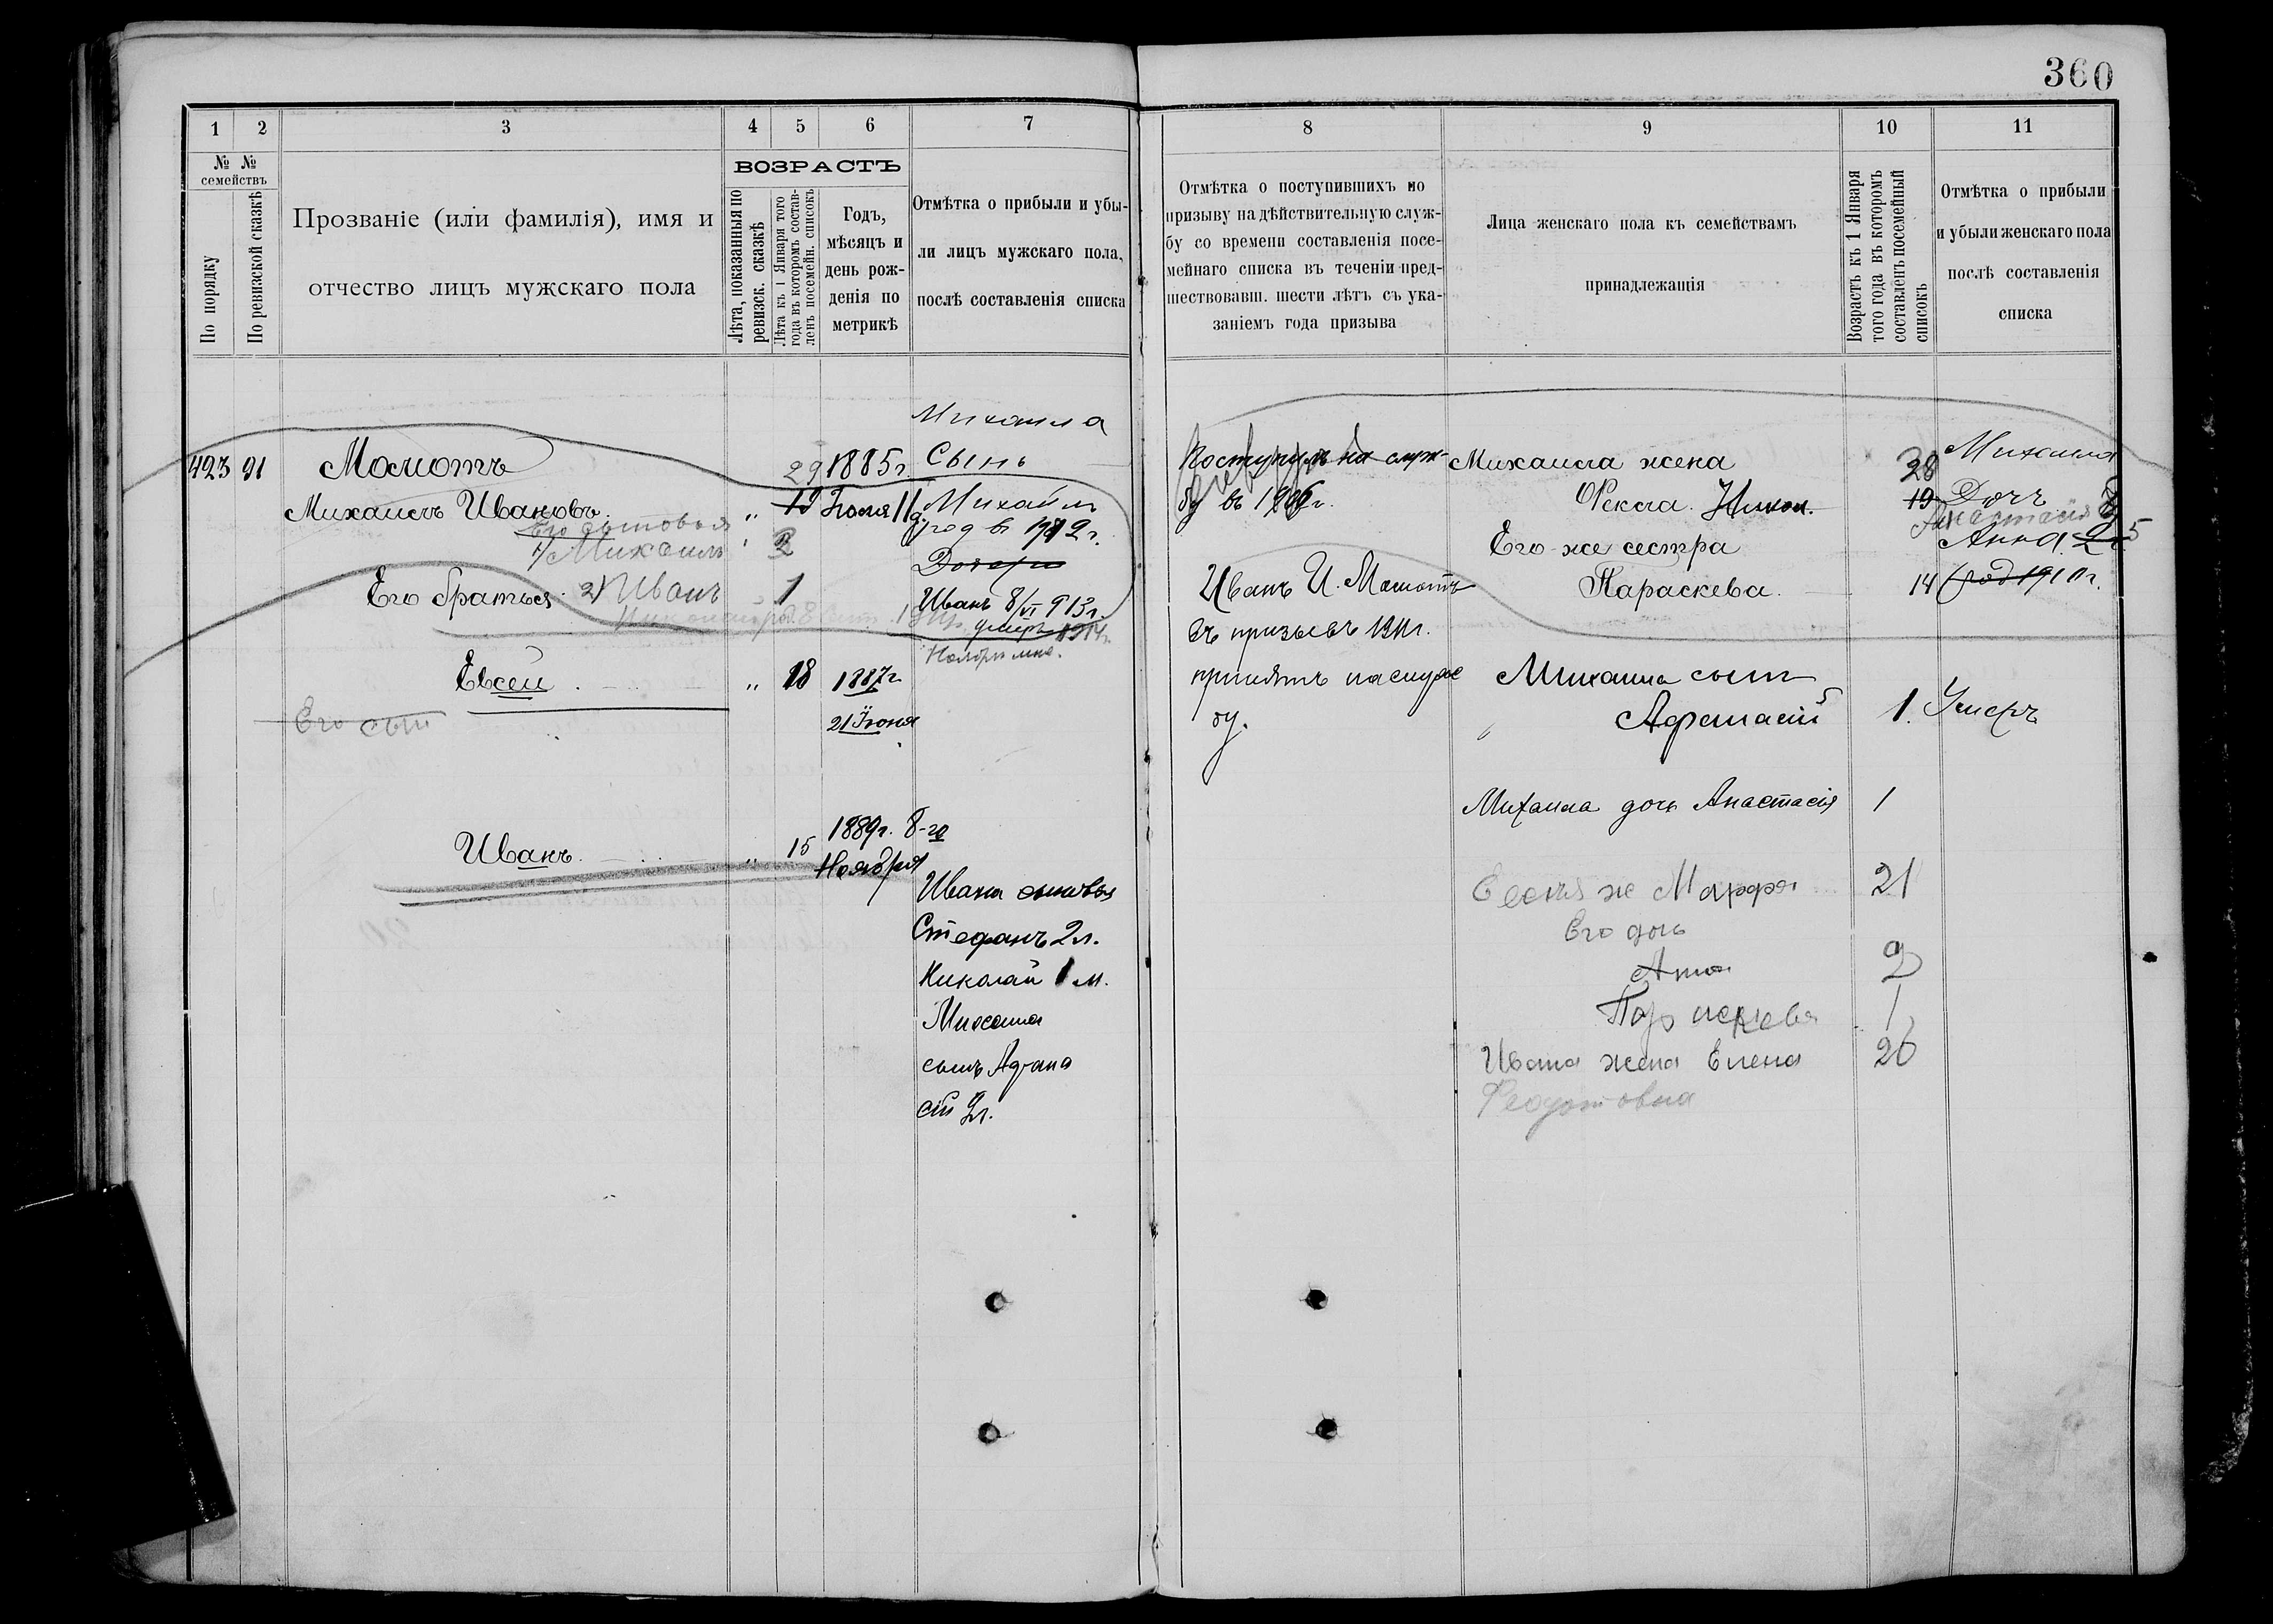 360
1
2
3
4
5
6
7
№ №
семействъ
По порядку
По ревизской сказкѣ
Прозваніе (или фамилія), имя и
отчество лицъ мужскаго пола
ВОЗРАСТЪ
Лѣта, показанныя по
ревизск. сказкѣ
Лѣта къ 1 Января того
года въ которомъ состав-
ленъ посемейн. списокъ
Годъ,
мѣсяцъ и
день рож-
денія по
метрикѣ
Отмѣтка о прибыли и убы-
ли лицъ мужскаго пола,
послѣ составленія списка
8
9
10
11
Отмѣтка о поступившихъ по
призыву на дѣйствительную служ-
бу со времени составленія посе-
мейнаго списка въ теченіи пред-
шествовавш. шести лѣтъ съ ука-
заніемъ года призыва
Лица женскаго пола къ семействамъ
принадлежащія
Возрастъ къ 1 Января
того года въ которомъ
составленъ посемейный
списокъ
Отмѣтка о прибыли
и убыли женскаго пола
послѣ составленія
списка
423 91 Мамотъ 29 1885г.
Михаилъ Ивановъ „ 19 Іюля 11
Его сыновья
1/ Михаилъ
Его братья 2) Иванъ 1
Евсей „ 18 1887г
21 Іюня
Его сын
Иванъ „ 15 1889г. 8-го
Ноября
Михаила
Сынъ
Михаилъ
род в 1912г.
Дочери
Иванъ 8/VI 913г.
умеръ 1914г.
Ивана сыновья
Стефанъ 2л.
Николай 1 м.
Михаила
сынъ Афана
сій 2л.
Поступилъ на служ-
бу въ 1906г.
Иванъ И. Мамотъ
въ призывъ 1911г.
принятъ на служ
бу.
Михаила жена 28
Фекла Никол. 19
Его-же сестра
Параскева 14
Михаила сынъ
Афанасій 1. Умеръ
Михаила дочь Анастасія 1
Евсея ж Марфа 21
Его дочь
Анна 2
Параскева 1
Ивана жена Елена 26
Федотовна
Михаила
Дочь
Анастасія
Анна 2 5
род 1911г.